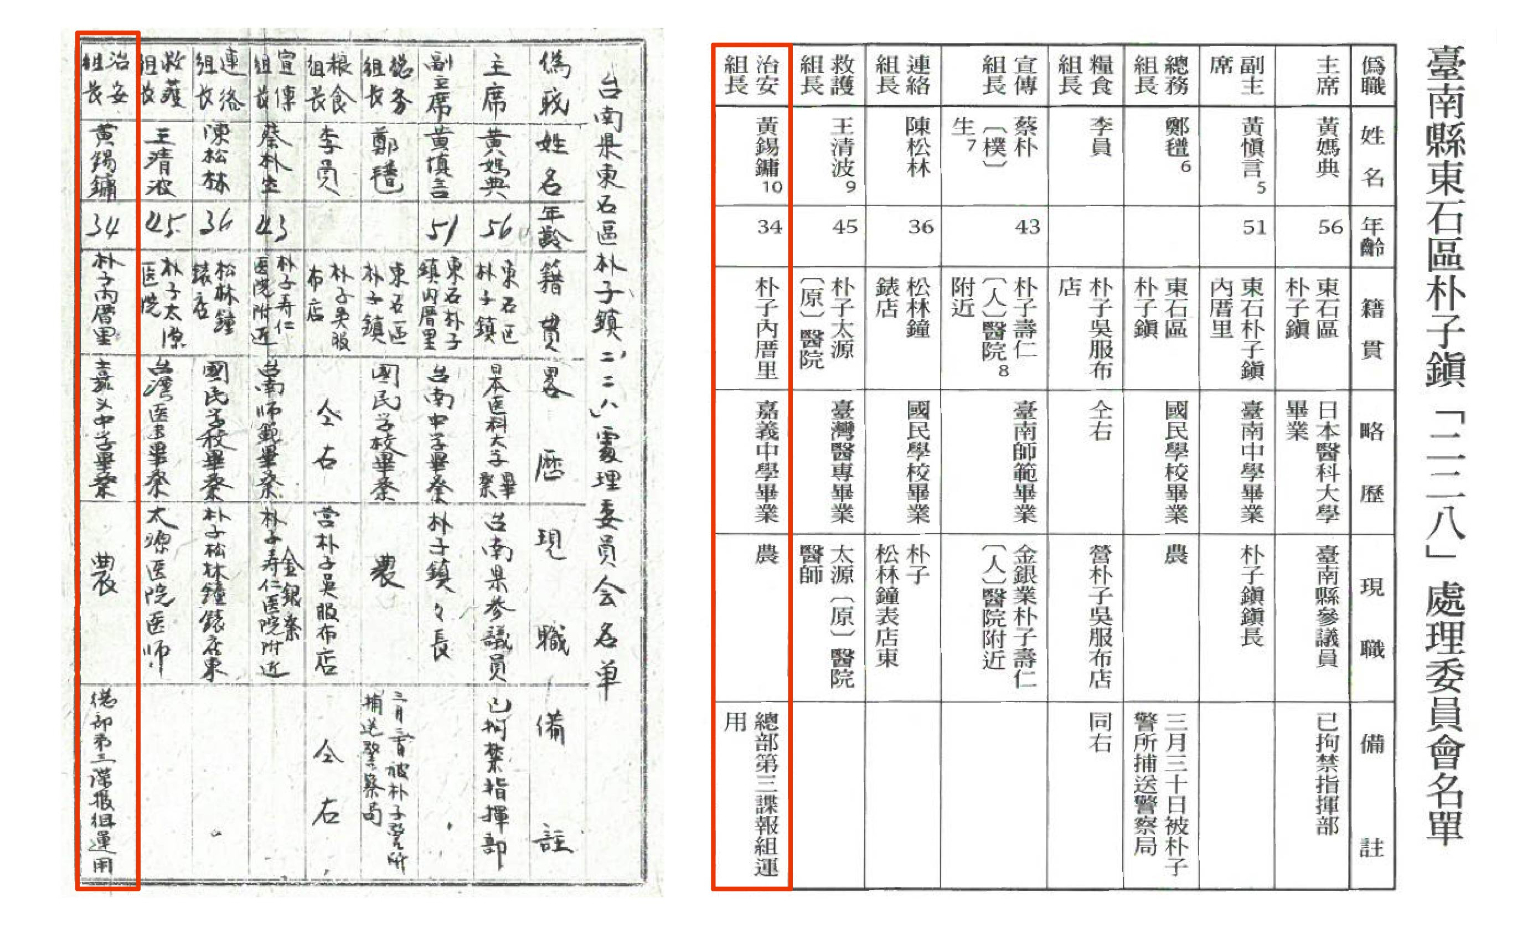 台南県東石區朴子鎮「二、二、八」處理委員会名单
偽職 姓名 年齡 籍貫 畧歷 現職 備註
主席 黃媽典 56 東石区朴子鎮 日本医科大学畢業 台南県參議員 已拘禁指揮部
副主席 黃慎言 51 東石朴子鎮内厝里 台南中学畢業 朴子鎮々長
總务組長 鄭𣯶 東石區朴子鎮 國民学校畢業 農 被朴子警所捕送警察局
粮食組長 李員 朴子吳服布店 仝右 营朴子吳服布店 仝右
宣傳組長 蔡朴生 43 朴子寿仁医院附近 台南师範畢業 金銀業朴子寿仁医院附近
連络組長 陳松林 36 松林鐘錶店 國民学校畢業 朴子松林鐘錶店東
救護組長 王清波 45 朴子太源医院 台灣医専畢業 太源医院医师
治安組長 黃錫鏞 34 朴子内厝里 嘉义中学畢業 農 總部第三諜报组運用
臺南縣東石區朴子鎭「二二八」處理委員會名單
僞職 姓名 年齡 籍貫 略歷 現職 備註
主席 黃媽典 56 東石區朴子鎭 日本醫科大學畢業 臺南縣參議員 已拘禁指揮部
副主席 黃愼言5 51 東石朴子鎭內厝里 臺南中學畢業 朴子鎭鎭長
總務組長 鄭𣯶6 東石區朴子鎭 國民學校畢業 農 三月三十日被朴子警所捕送警察局
糧食組長 李員 朴子吳服布店 仝右 營朴子吳服布店 同右
宣傳組長 蔡朴〔樸〕生7 43 朴子壽仁〔人〕醫院8附近 臺南師範畢業 金銀業朴子壽仁〔人〕醫院附近
連絡組長 陳松林 36 松林鐘錶店 國民學校畢業 朴子松林鐘表店東
救護組長 王清波9 45 朴子太源〔原〕醫院 臺灣醫專畢業 太源〔原〕醫院醫師
治安組長 黃錫鏞10 34 朴子內厝里 嘉義中學畢業 農 總部第三諜報組運用